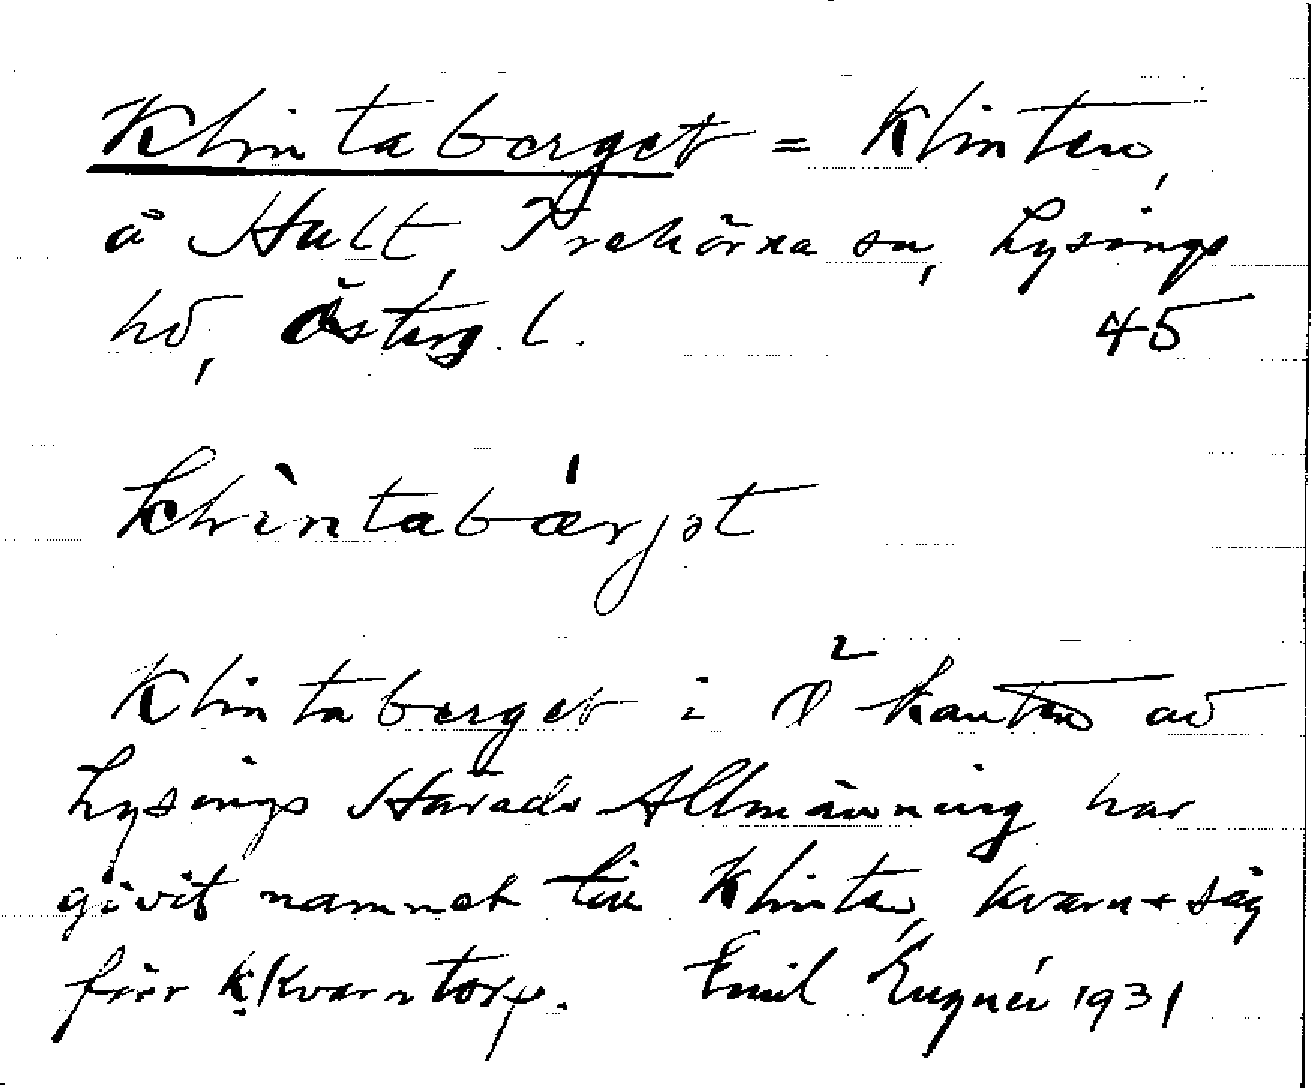 Klintaberget = Klinten,
å Hult, Trehörna sn, Lysings
hd, Österg. l. 45
klìntabárjət
Klintaberget i Ö kanten av
Lysings Härads Allmänning har
givit namnet till Klinten, kvarn + såg
förr Kvarntorp. Emil 1931